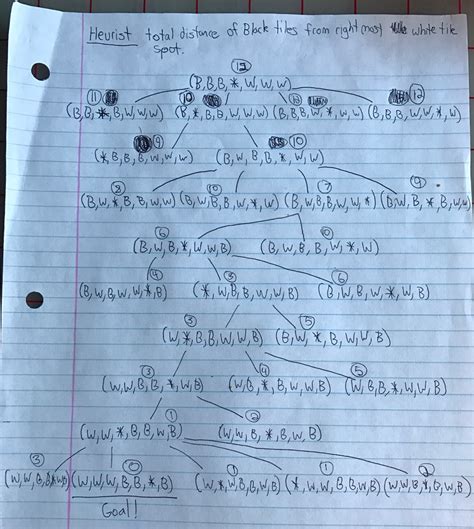 Heurist total distance of Black tiles from right most white tile
spot.
(B,B,B,*,W,W,W)
11 10 12
(B,B,*,B,W,W,W) (B,*,B,B,W,W,W) (B,B,B,W,*,W,W) (B,B,B,W,W,*,W)
9 10
(*,B,B,B,W,W,W) (B,W,B,B,*,W,W)
8 10 7 9
(B,W,*,B,B,W,W) (B,W,B,B,W,*,W) (B,W,B,B,W,W,*) (B,W,B,*,B,W,W)
6
(B,W,B,*,W,W,B) (B,W,B,B,W,*,W)
4 3 6
(B,W,B,W,W,*,B) (*,W,B,B,W,W,B) (B,W,B,W,*,W,B)
3 5
(W,*,B,B,W,W,B) (B,W,*,B,W,W,B)
3 4 5
(W,W,B,B,*,W,B) (W,B,*,B,W,W,B) (W,B,B,*,W,W,B)
1 2
(W,W,*,B,B,W,B) (W,W,B,*,B,W,B)
3 0 1 1 2
(W,W,B,B,*,W,B) (W,W,W,B,B,*,B) (W,*,W,B,B,W,B) (*,W,W,B,B,W,B) (W,W,B,*,B,W,B)
Goal!